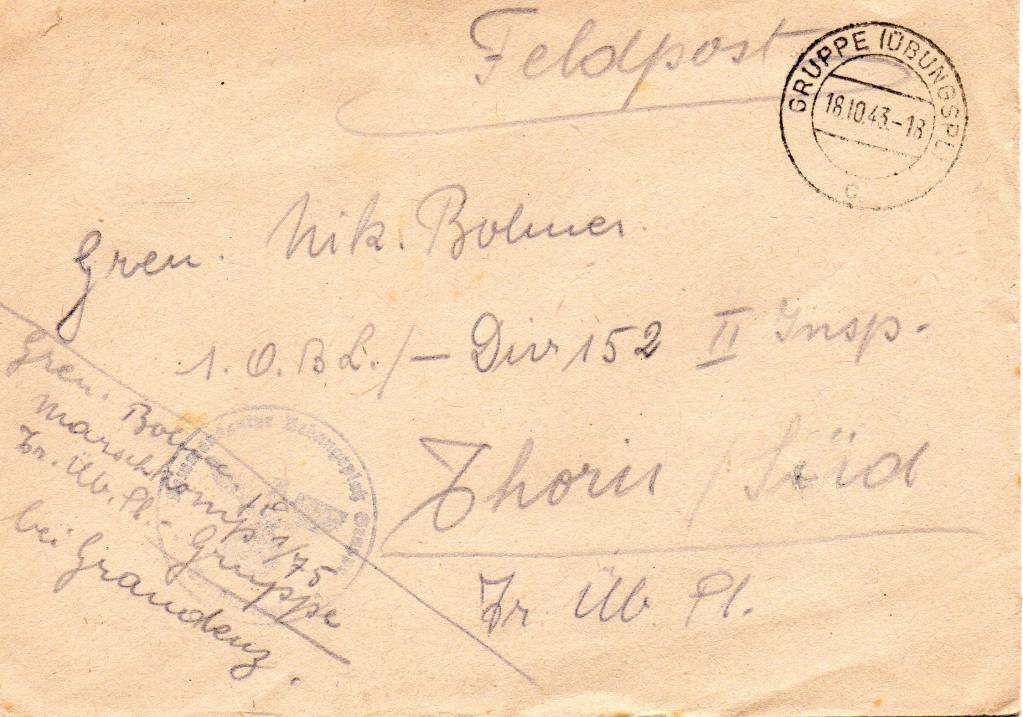 Feldpost
GRUPPE (ÜBUNGSPL)
18.10.43.-18
c
Gren. Nik. Bohmer.
1. O.B L. /- Div 152 II Insp.
Thorn / Süd
Tr. Üb. Pl.
Gren.
Marschkomp 1/75
Tr. Üb. Pl.- Gruppe
bei Graudenz.